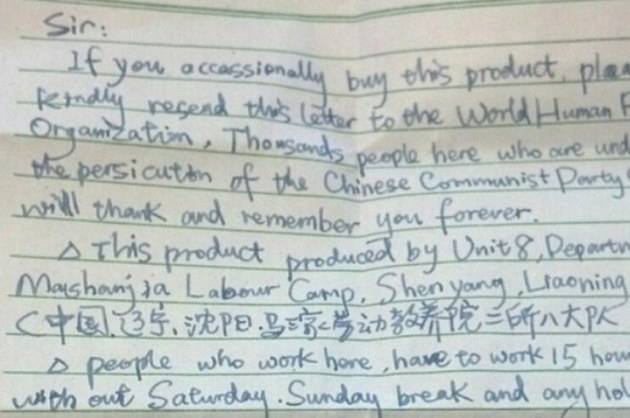 Sir:
If you occassionally buy this product, plea
kindly resend this letter to the World Human R
Organization, Thousands people here who are und
the persicution of the Chinese Communist Party
will thank and remember you forever.
△ This product produced by Unit 8, Departm
Mashanjia Labour Camp, Shenyang, Liaoning
(中国,辽宁,沈阳,马三家劳动教养院二所八大队
△ people who work here, have to work 15 hou
with out Saturday. Sunday break and any hol